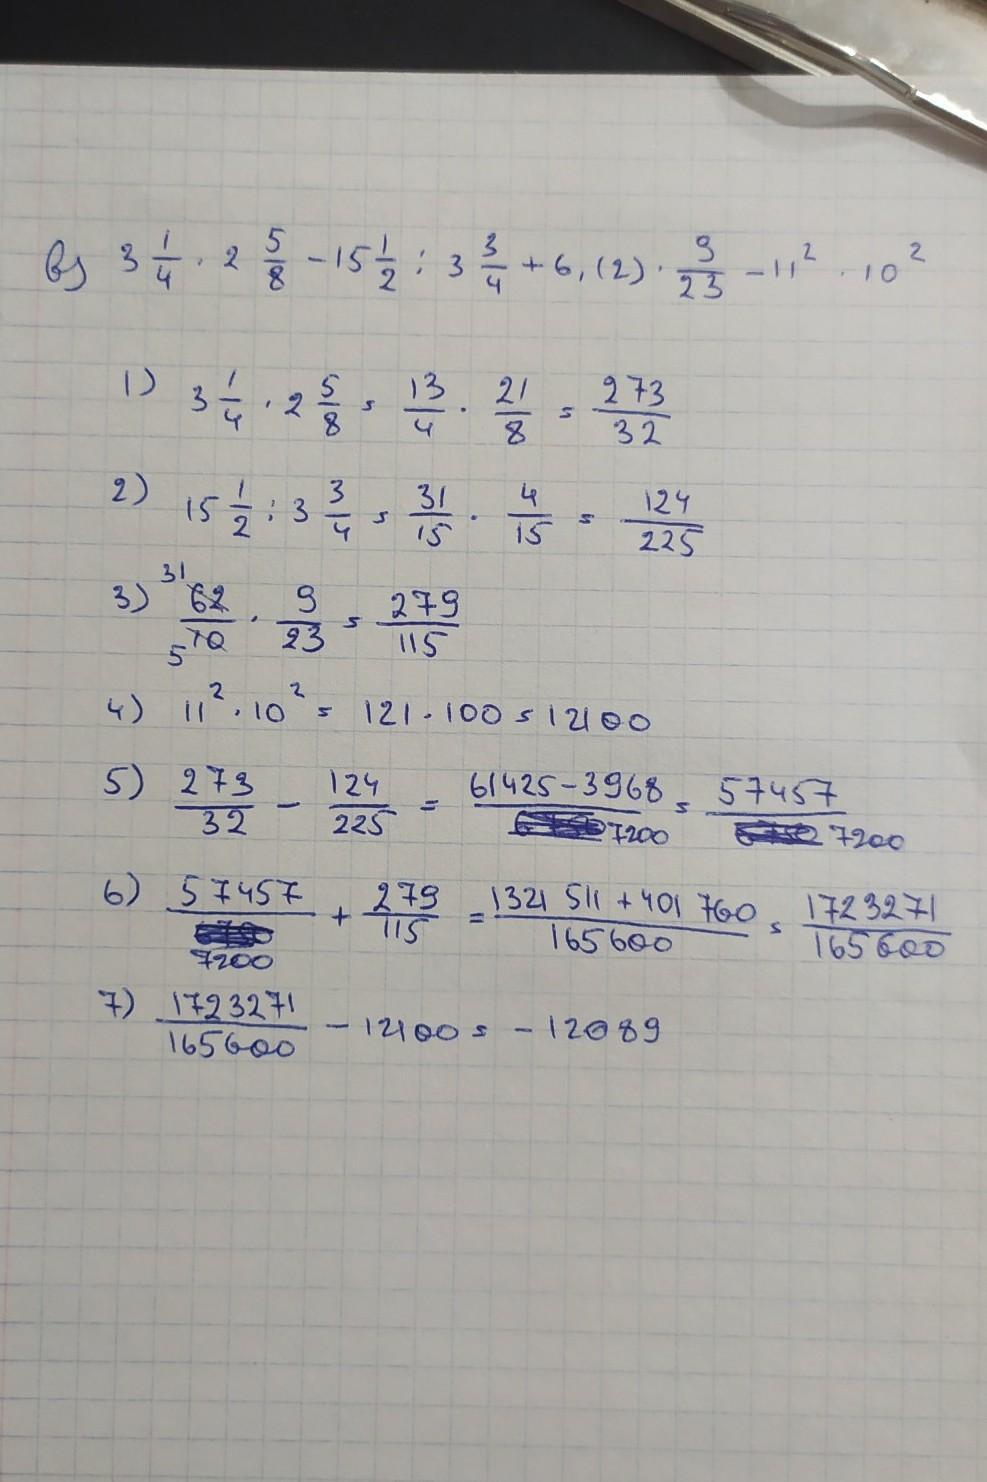 в) 3 1/4 · 2 5/8 - 15 1/2 : 3 3/4 + 6,(2) · 9/23 - 11² · 10²
1) 3 1/4 · 2 5/8 = 13/4 · 21/8 = 273/32
2) 15 1/2 : 3 3/4 = 31/15 · 4/15 = 124/225
3) 31 62/10 5 · 9/23 = 279/115
4) 11² · 10² = 121 · 100 = 12100
5) 273/32 - 124/225 = 61425 - 3968/7200 = 57457/7200
6) 57457/7200 + 279/115 = 1321 511 + 401 760/165600 = 1723271/165600
7) 1723271/165600 - 12100 = - 12089